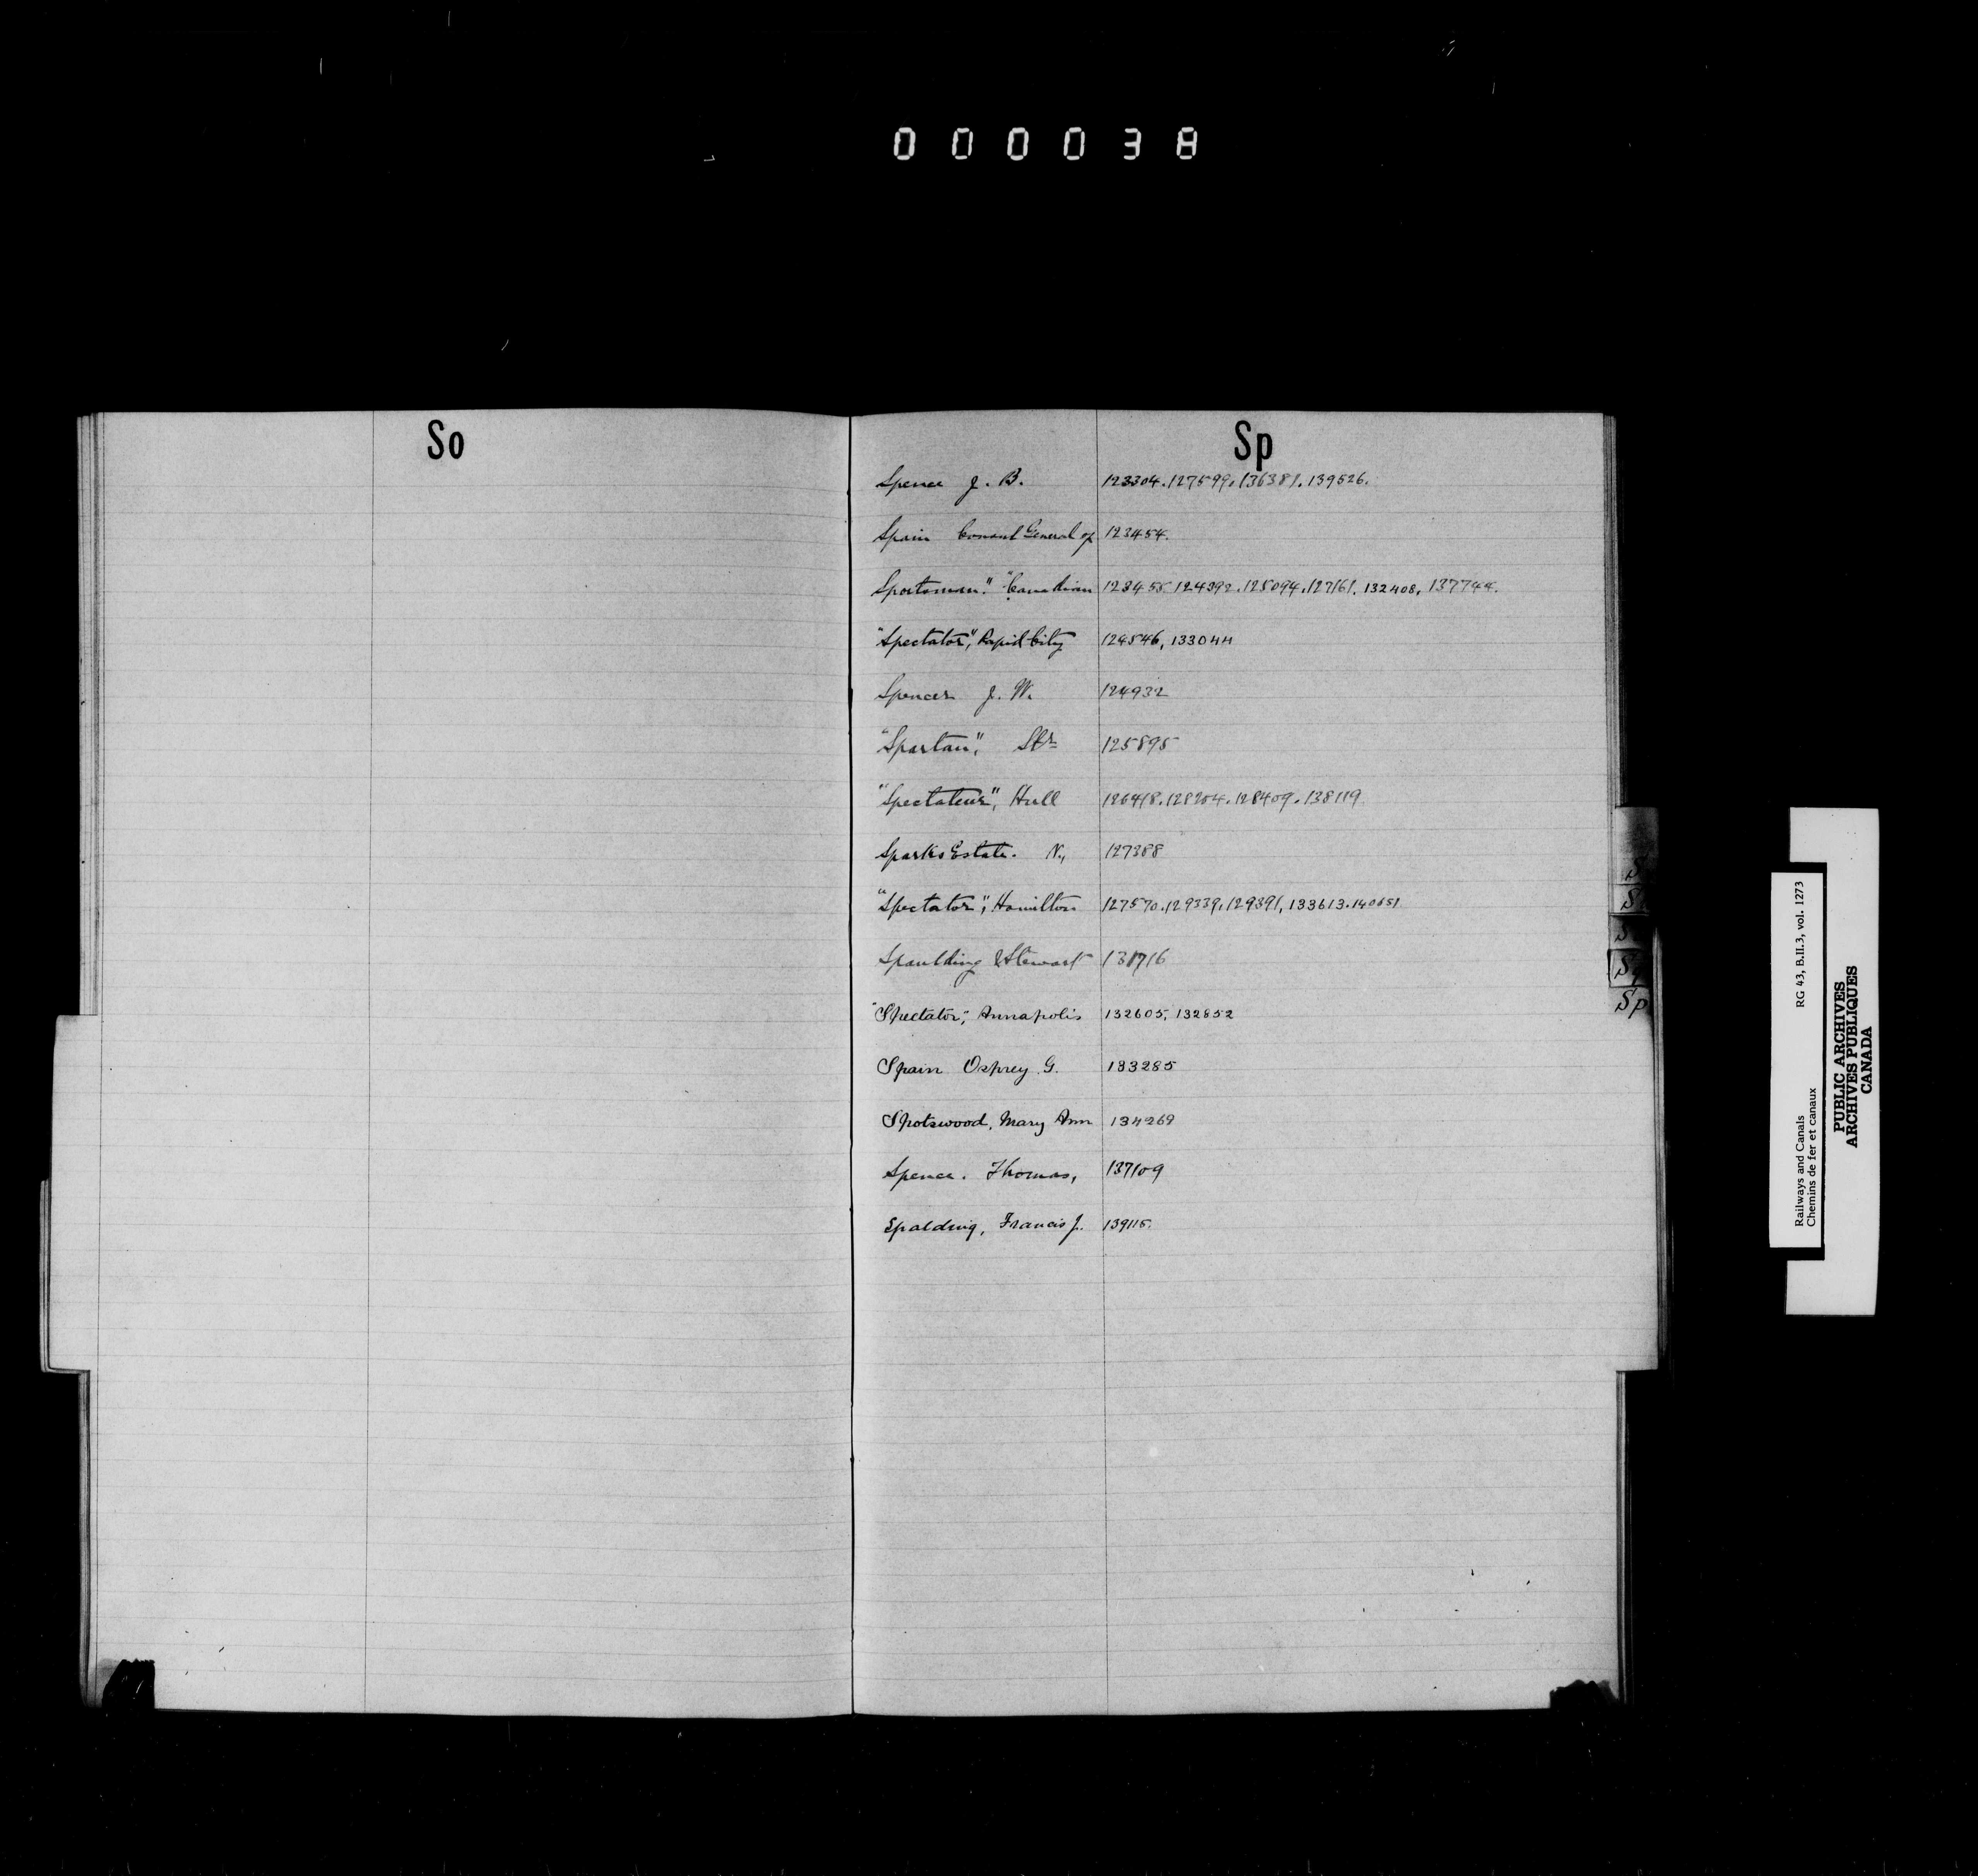 000038
So
Sp
Spence J. B. 123304. 127599. 136381. 139526.
Spain Consul General of 123454.
Sportsman." "Canadian 123455 124392. 125094. 127161. 132408, 137744.
"Spectator", Rapid City 124546, 133044
Spencer J. W. 124932
"Spartan", Str 125895
"Spectateur", Hull 126418. 128204. 128409. 138119
Sparks Estate. N., 127388
"Spectator", Hamilton 127570. 129339. 129391, 133613. 140651
Spaulding & Stewart 131716
"Spectator", Annapolis 132605, 132852
Spain Osprey G. 133285
Spotswood, Mary Ann 134269
Spence. Thomas, 137109
Spalding, Francis J. 139115.
Sp
Railways and Canals RG 43, B.II.3, vol. 1273
Chemins de fer et canaux
PUBLIC ARCHIVES
ARCHIVES PUBLIQUES
CANADA